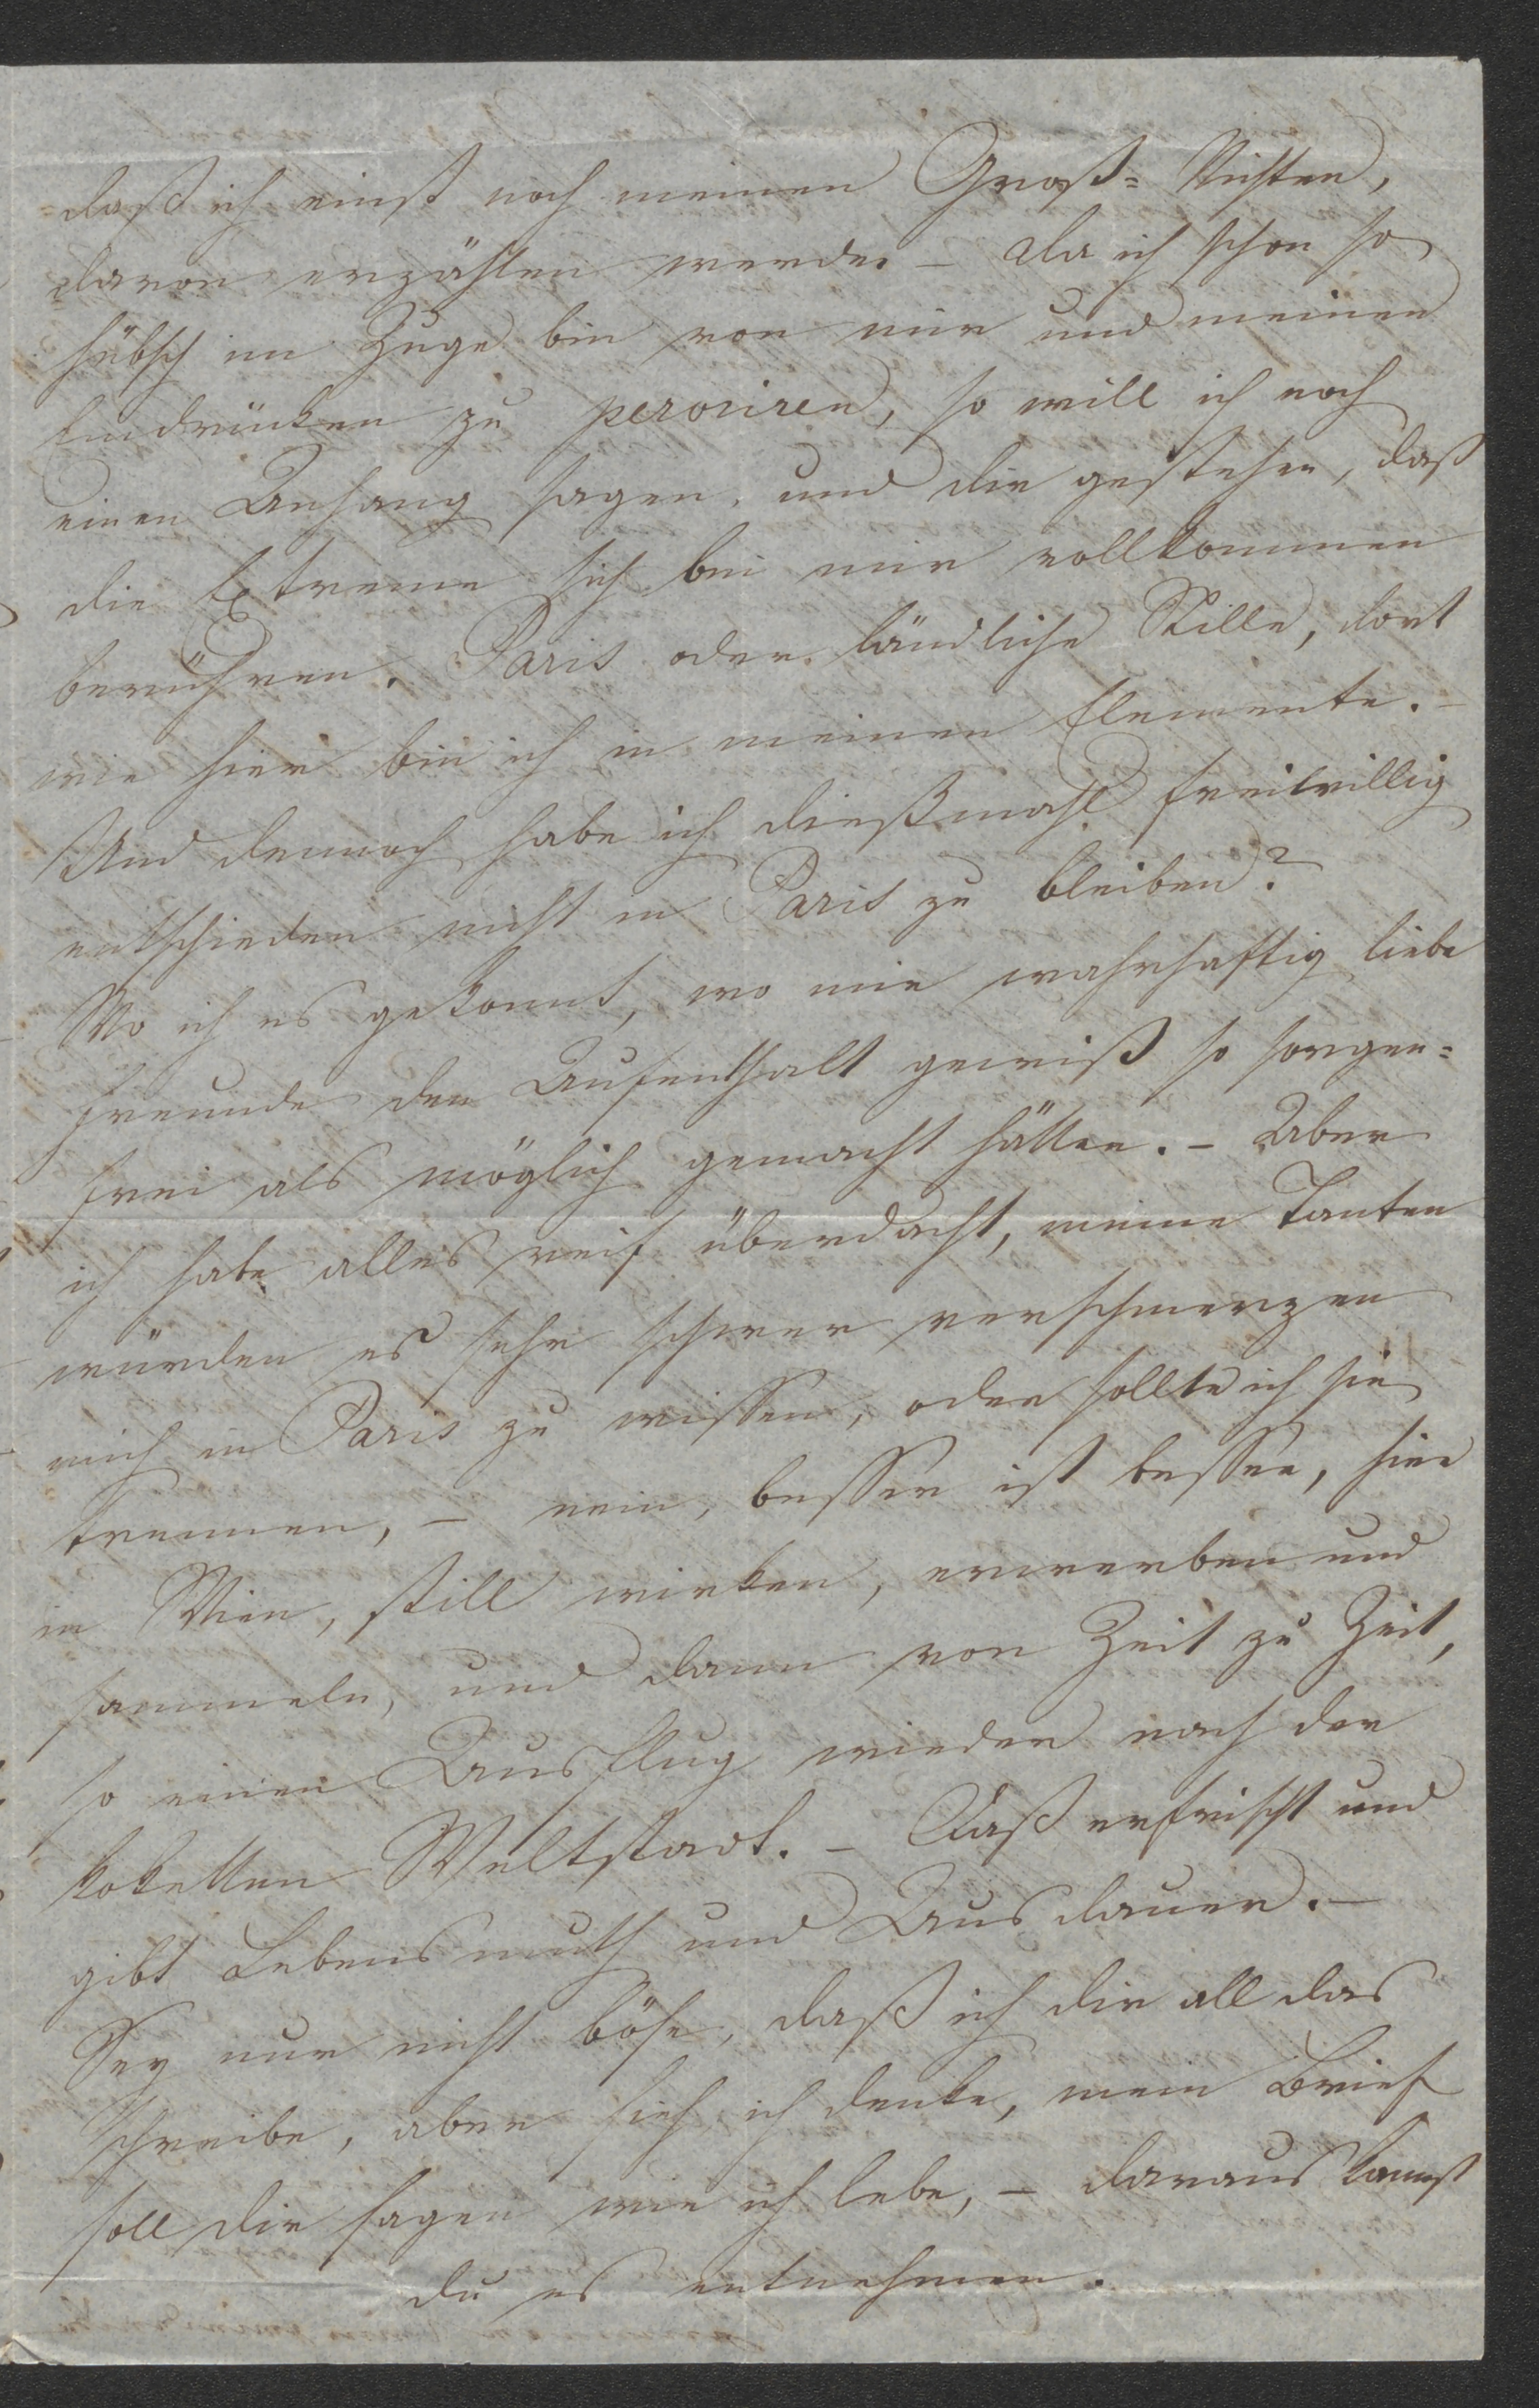 daß ich einst noch meinen Groß=Nichten,
davon erzählen werde. – Da ich schon so
hübsch im Zuge bin von mir und meinen
Eindrücken zu peroriren, so will ich noch
einen Anhang sagen, und dir gestehen, daß
die Extreme sich bei mir vollkommen
berühren. Paris oder ländliche Stille, dort
wie hier bin ich in meinem Elemente. –
Und dennoch habe ich dießmahl freiwillig
entschieden nicht in Paris zu bleiben?
Wo ich es gekonnt, wo mir wahrhaftig liebe
Freunde den Aufenthalt gewiß so sorgen=
frei als möglich gemacht hätten. – Aber
ich habe alles reif überdacht, meine Tanten
würden es sehr schwer verschmerzen
mich in Paris zu wissen, oder sollte ich sie
trennen, – nein, besser ist besser, hier
in Wien, still wirken, erwerben und
sammeln, und dann von Zeit zu Zeit,
so einen Ausflug wieder nach der
koketten Weltstadt. – Daß erfrischt und
gibt Lebensmuth und Ausdauer. –
Sey nur nicht böse, daß ich dir all das
schreibe, aber sieh ich denke, mein Brief
soll dir sagen wie ich lebe, – daraus kannst
du es entnehmen.